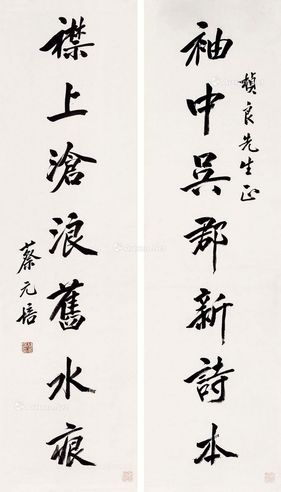 袖中吳郡新詩本
楨良先生正
襟上滄浪舊水痕
蔡元培